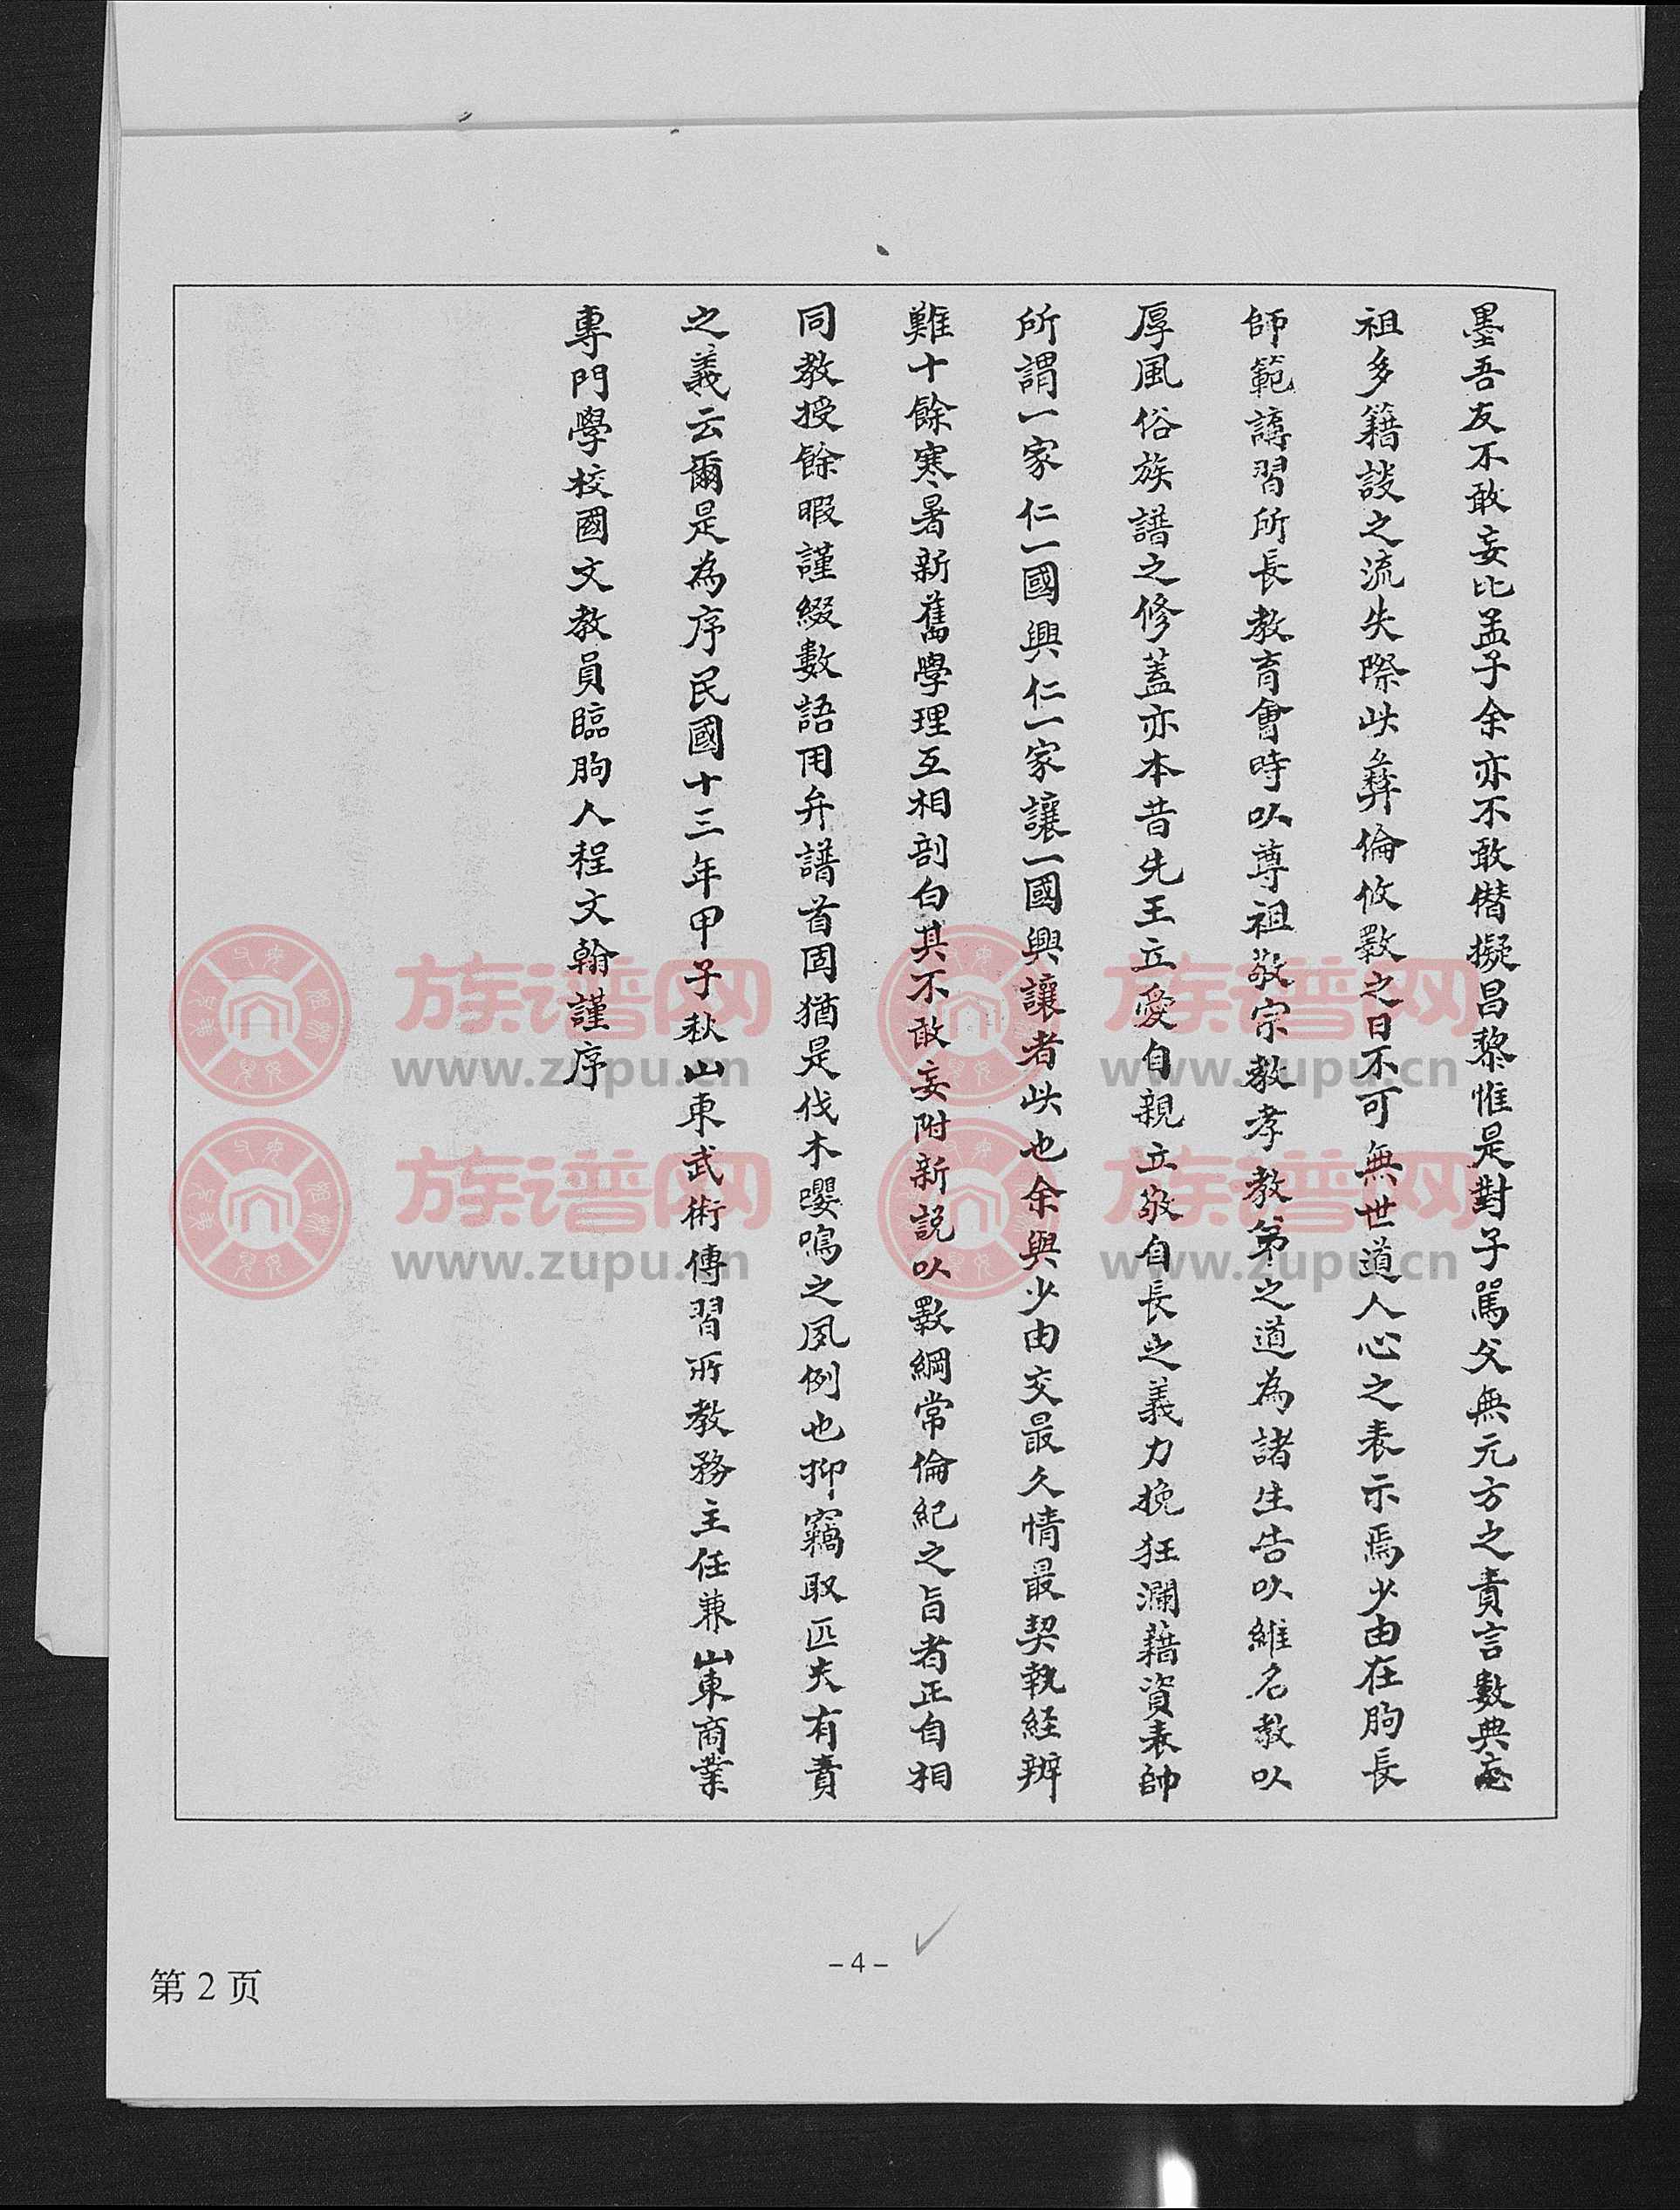 墨吾友不敢妄比孟子余亦不敢僭擬昌黎惟是對子罵父無元方之責言數典忘
祖多籍談之流失際此彝倫攸斁之日不可無世道人心之表示焉少由在朐長
師範講習所長教育會時以尊祖敬宗教孝教弟之道為諸生告以維名教以
厚風俗族譜之修蓋亦本昔先王立愛自親立敬自長之義力挽狂瀾藉資表帥
所謂一家仁一國興仁一家讓一國興讓者此也余與少由交最久情最契執経辨
難十餘寒暑新舊學理互相剖白其不敢妄附新説以斁綱常倫紀之旨者正自相
同教授餘暇謹綴數語用弁譜首固猶是伐木嚶鳴之夙例也抑竊取匹夫有責
之義云爾是為序民國十三年甲子秋山東武術傳習所教務主任兼山東商業
專門學校國文教員臨朐人程文翰謹序
族谱网 族谱网
www.zupu.cn www.zupu.cn
族谱网 族谱网
www.zupu.cn www.zupu.cn
-4-
第2页